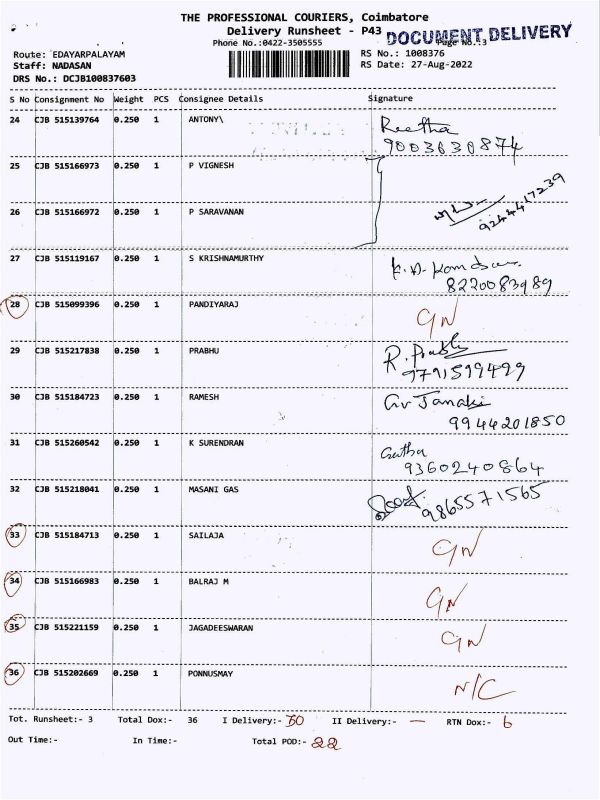 THE PROFESSIONAL COURIERS, Coimbatore
Delivery Runsheet - P43
DOCUMENT DELIVERY
Phone No.:0422-3505555
Page No.:3
Route: EDAYARPALAYAM
RS No.: 1008376
Staff: NADASAN
RS Date: 27-Aug-2022
DRS No.: DCJB100837603
S No Consignment No Weight PCS Consignee Details Signature
24 CJB 515139764 0.250 1 ANTONY\ Reetha
9003630874
25 CJB 515166973 0.250 1 P VIGNESH
26 CJB 515166972 0.250 1 P SARAVANAN 9244417239
27 CJB 515119167 0.250 1 S KRISHNAMURTHY
8220083989
28 CJB 515099396 0.250 1 PANDIYARAJ GN
29 CJB 515217838 0.250 1 PRABHU R. Prabhu
9791519499
30 CJB 515184723 0.250 1 RAMESH Gv Janaki
9944201850
31 CJB 515260542 0.250 1 K SURENDRAN Geetha
9360240864
32 CJB 515218041 0.250 1 MASANI GAS 9865571565
33 CJB 515184713 0.250 1 SAILAJA GN
34 CJB 515166983 0.250 1 BALRAJ M GN
35 CJB 515221159 0.250 1 JAGADEESWARAN GN
36 CJB 515202669 0.250 1 PONNUSMAY N/C
Tot. Runsheet:- 3 Total Dox:- 36 I Delivery:- 30 II Delivery:- — RTN Dox:- 6
Out Time:- In Time:- Total POD:- 22